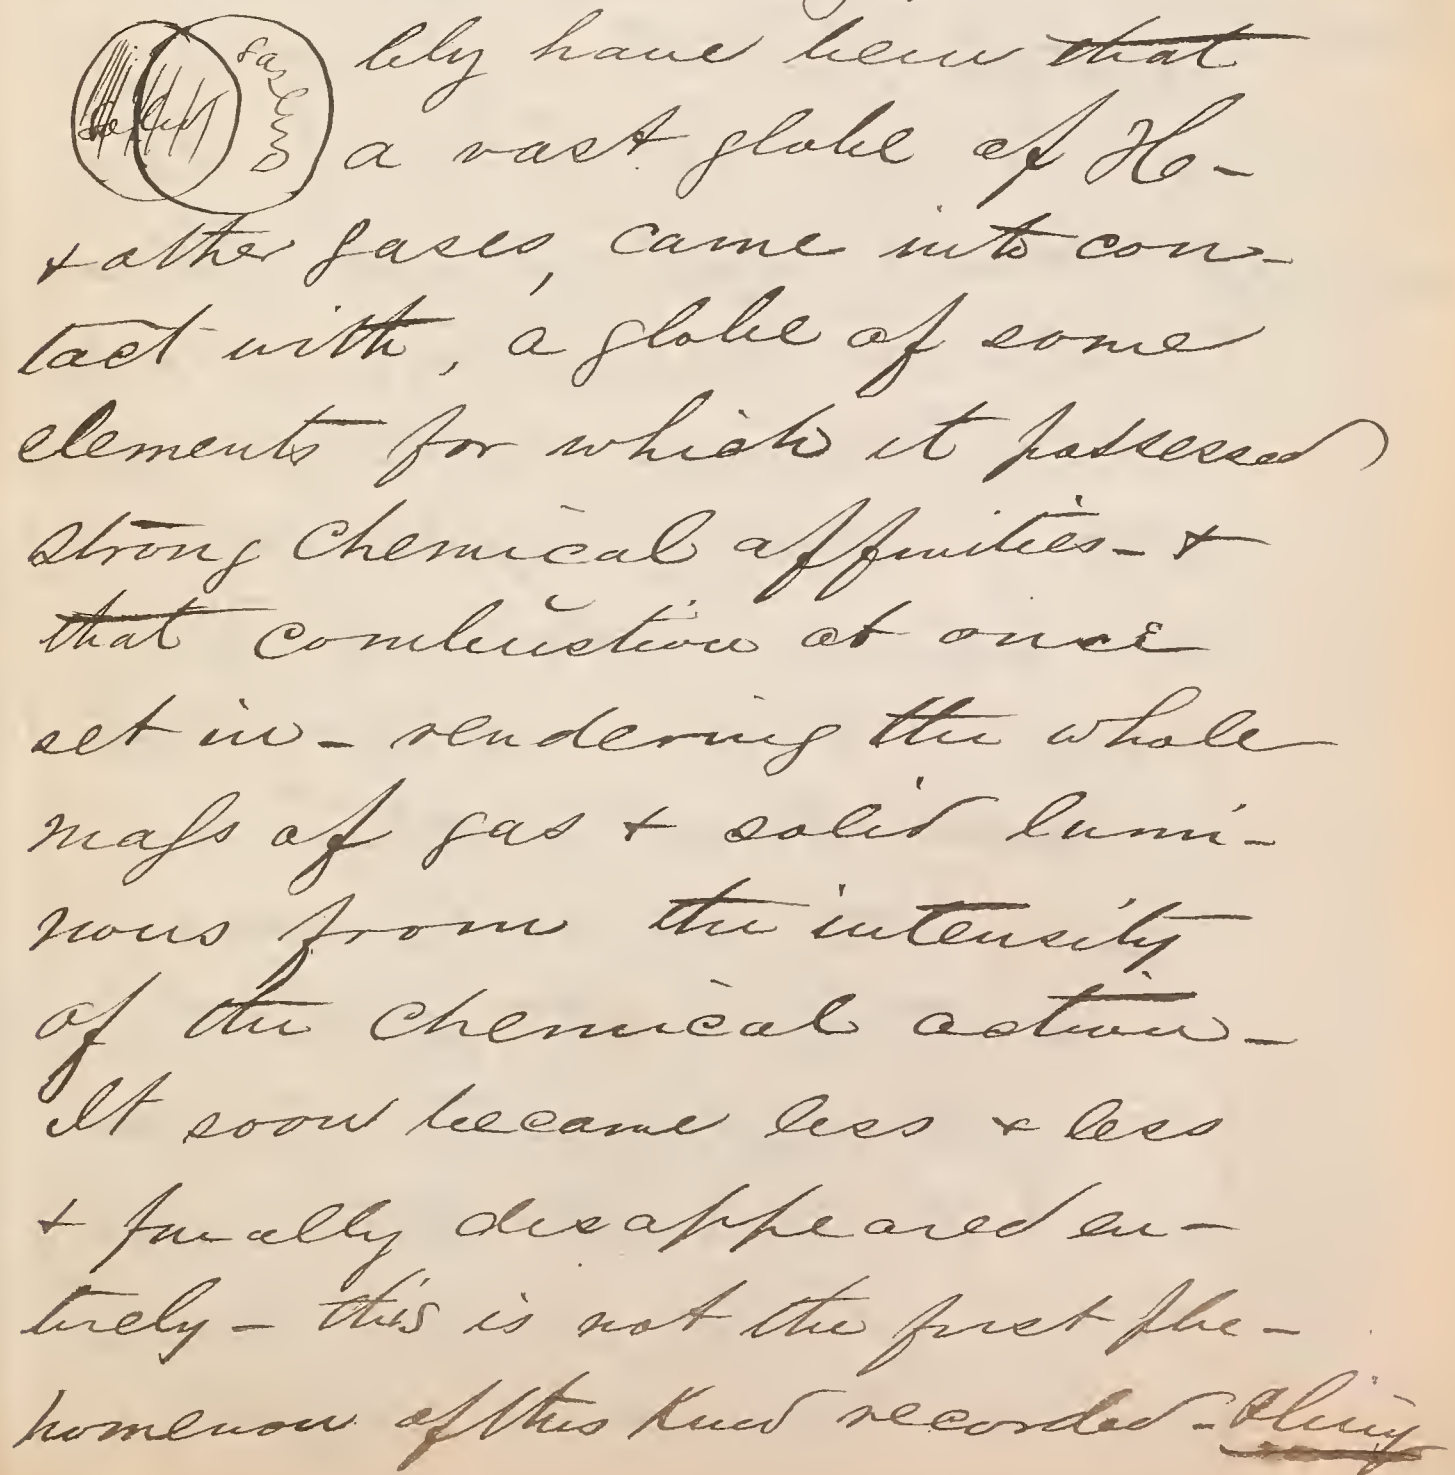 solid
gaseous
bly have been that
a vast globe of H-
+ other gases, came into con-
tact with, a globe of some
elements for which it possessed
strong chemical affinities - +
that combustion at once
set in - rendering the whole
mass of gas + solid lumi-
nous from the intensity
of the chemical action -
It soon became less + less
+ finally disappeared en-
tirely - this is not the first phe-
nomenon of this kind recorded - Pliny